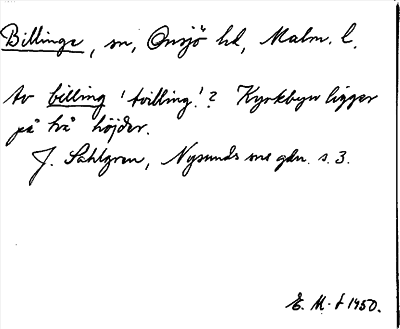 Billinge, sn, Onsjö hd, Malm. l.
Av billing 'tvilling'? Kyrkbyn ligger
på två höjder.
J. Sahlgren, Nysunds sns gdn. s. 3.
E. M-f 1950.